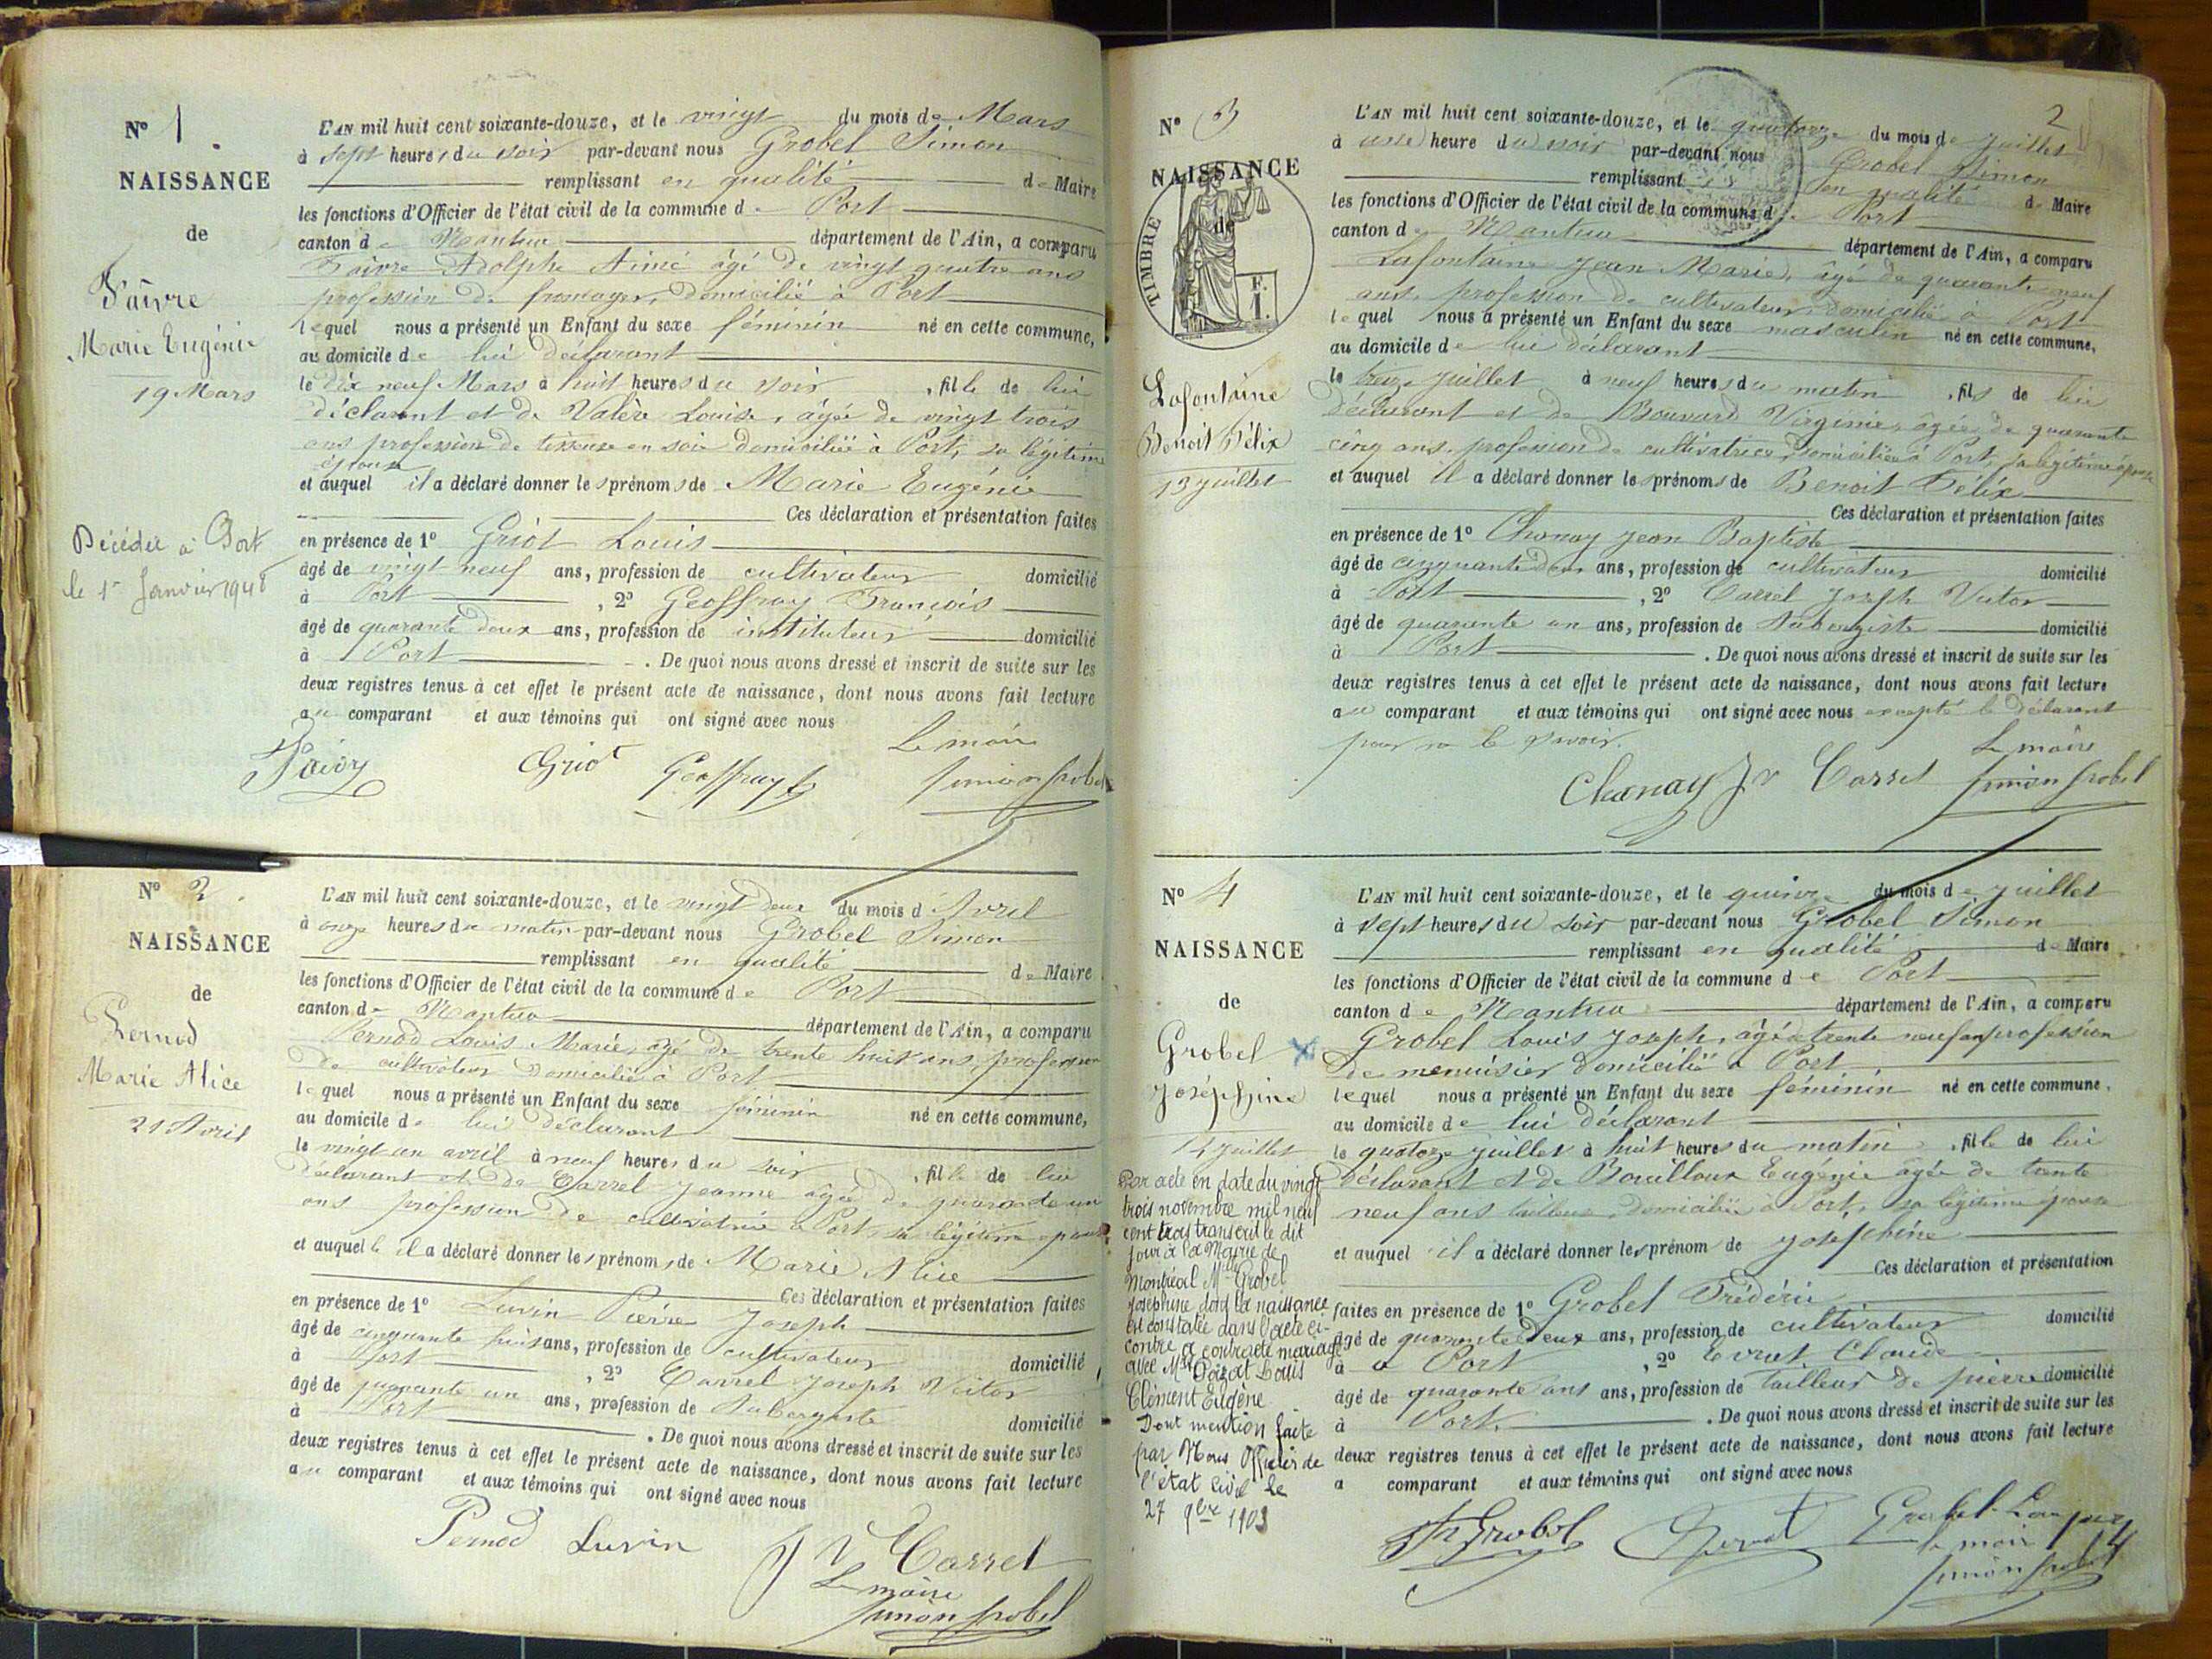 N° 1
NAISSANCE
de
Faivre
Marie Eugénie
19 Mars
Décédée à Port
le 1er Janvier 1948
L'AN mil huit cent soixante-douze, et le vingt du mois de Mars
à sept heures du soir par-devant nous Grobel Simon
remplissant en qualité de Maire
les fonctions d'Officier de l'état civil de la commune de Port
canton de Nantua département de l'Ain, a comparu
Faivre Adolphe Aimé âgé de vingt quatre ans
profession de fromager, domicilié à Port
lequel nous a présenté un Enfant du sexe féminin né en cette commune,
au domicile de lui déclarant
le dix neuf Mars à huit heures du soir, fille de lui
déclarant et de Valère Louise, âgée de vingt trois
ans profession de tisseuse en soie domiciliée à Port, sa légitime
épouse
et auquel il a déclaré donner les prénoms de Marie Eugénie
Ces déclaration et présentation faites
en présence de 1° Griot Louis
âgé de vingt neuf ans, profession de cultivateur domicilié
à Port, 2° Geoffray François
âgé de quarante deux ans, profession de instituteur domicilié
à Port. De quoi nous avons dressé et inscrit de suite sur les
deux registres tenus à cet effet le présent acte de naissance, dont nous avons fait lecture
au comparant et aux témoins qui ont signé avec nous
Le maire
Faivre Griot Geoffray Simon Grobel
N° 2
NAISSANCE
de
Pernod
Marie Alice
21 Avril
L'AN mil huit cent soixante-douze, et le vingt deux du mois d'Avril
à onze heures du matin par-devant nous Grobel Simon
remplissant en qualité de Maire
les fonctions d'Officier de l'état civil de la commune de Port
canton de Nantua département de l'Ain, a comparu
Pernod Louis Marie, âgé de trente huit ans, profession
de cultivateur domicilié à Port
lequel nous a présenté un Enfant du sexe féminin né en cette commune,
au domicile de lui déclarant
le vingt un avril à neuf heures du soir, fille de lui
déclarant et de Carrel Jeanne âgée de quarante un
ans profession de cultivatrice à Port, sa légitime épouse
et auquel il a déclaré donner les prénoms de Marie Alice
Ces déclaration et présentation faites
en présence de 1° Luvin Pierre Joseph
âgé de cinquante huit ans, profession de cultivateur domicilié
à Port, 2° Carrel Joseph Victor
âgé de quarante un ans, profession de Aubergiste domicilié
à Port. De quoi nous avons dressé et inscrit de suite sur les
deux registres tenus à cet effet le présent acte de naissance, dont nous avons fait lecture
au comparant et aux témoins qui ont signé avec nous
Pernod Luvin J V Carrel
Le maire
Simon Grobel
2
N° 3
NAISSANCE
de
TIMBRE
F.
1.
Lafontaine
Benoit Félix
13 juillet
L'AN mil huit cent soixante-douze, et le quatorze du mois de juillet
à une heure du soir par-devant nous Grobel Simon
remplissant en qualité de Maire
les fonctions d'Officier de l'état civil de la commune de Port
canton de Nantua département de l'Ain, a comparu
Lafontaine Jean Marie, âgé de quarante neuf
ans, profession de cultivateur, domicilié à Port
lequel nous a présenté un Enfant du sexe masculin né en cette commune,
au domicile de lui déclarant
le treize juillet à neuf heures du matin, fils de lui
déclarant et de Bouvard Virginie, âgée de quarante
cinq ans, profession de cultivatrice, domiciliée à Port, sa légitime épouse
et auquel il a déclaré donner les prénoms de Benoit Félix
Ces déclaration et présentation faites
en présence de 1° Chanay Jean Baptiste
âgé de cinquante deux ans, profession de cultivateur domicilié
à Port, 2° Carrel Joseph Victor
âgé de quarante un ans, profession de Aubergiste domicilié
à Port. De quoi nous avons dressé et inscrit de suite sur les
deux registres tenus à cet effet le présent acte de naissance, dont nous avons fait lecture
au comparant et aux témoins qui ont signé avec nous excepté le déclarant
pour ne le savoir.
Le maire
Chanay J V Carrel Simon Grobel
N° 4
NAISSANCE
de
Grobel
Joséphine
14 juillet
Par acte en date du vingt
trois novembre mil neuf
cent trois transcrit le dit
jour à la Mairie de
Montréal Mlle Grobel
Joséphine dont la naissance
est constatée dans l'acte ci-
contre a contracté mariage
avec Mr Louis
Clément Eugène
Dont mention faite
par Nous Officier de
l'état civil le
27 9bre 1903
L'AN mil huit cent soixante-douze, et le quinze du mois de juillet
à sept heures du soir par-devant nous Grobel Simon
remplissant en qualité de Maire
les fonctions d'Officier de l'état civil de la commune de Port
canton de Nantua département de l'Ain, a comparu
Grobel Louis Joseph, âgé trente neuf ans profession
de menuisier domicilié à Port
lequel nous a présenté un Enfant du sexe féminin né en cette commune,
au domicile de lui déclarant
le quatorze juillet à huit heures du matin, fille de lui
déclarant et de Bouilloux Eugénie âgée de trente
neuf ans tailleuse, domiciliée à Port, sa légitime épouse
et auquel il a déclaré donner les prénom de Joséphine
Ces déclaration et présentation
faites en présence de 1° Grobel Frédéric
âgé de quarante deux ans, profession de cultivateur domicilié
à a Port, 2° Evrat Claude
âgé de quarante ans ans, profession de tailleur de pierre domicilié
à Port. De quoi nous avons dressé et inscrit de suite sur les
deux registres tenus à cet effet le présent acte de naissance, dont nous avons fait lecture
a comparant et aux témoins qui ont signé avec nous
Fr Grobel Grobel
le maire
Simon Grobel